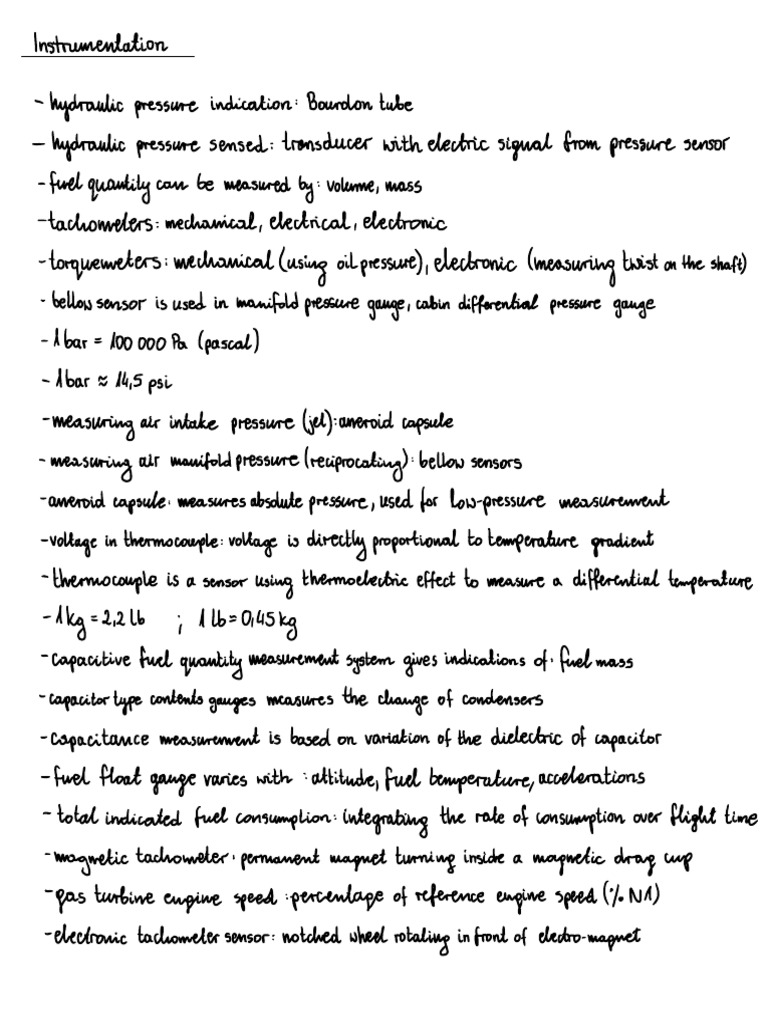 Instrumentation
- hydraulic pressure indication: Bourdon tube
- hydraulic pressure sensed: transducer with electric signal from pressure sensor
- fuel quantity can be measured by: volume, mass
- tachometers: mechanical, electrical, electronic
- torquemeters: mechanical (using oil pressure), electronic (measuring twist on the shaft)
- bellow sensor is used in manifold pressure gauge, cabin differential pressure gauge
- 1 bar = 100 000 Pa (pascal)
- 1 bar ≈ 14,5 psi
- measuring air intake pressure (jet): aneroid capsule
- measuring air manifold pressure (reciprocating): bellow sensors
- aneroid capsule: measures absolute pressure, used for low-pressure measurement
- voltage in thermocouple: voltage is directly proportional to temperature gradient
- thermocouple is a sensor using thermoelectric effect to measure a differential temperature
- 1 kg = 2,2 lb ; 1 lb = 0,45 kg
- capacitive fuel quantity measurement system gives indications of: fuel mass
- capacitor type contents gauges measures the change of condensers
- capacitance measurement is based on variation of the dielectric of capacitor
- fuel float gauge varies with : attitude, fuel temperature, accelerations
- total indicated fuel consumption: integrating the rate of consumption over flight time
- magnetic tachometer: permanent magnet turning inside a magnetic drag cup
- gas turbine engine speed : percentage of reference engine speed (% N1)
- electronic tachometer sensor: notched wheel rotating in front of electro-magnet